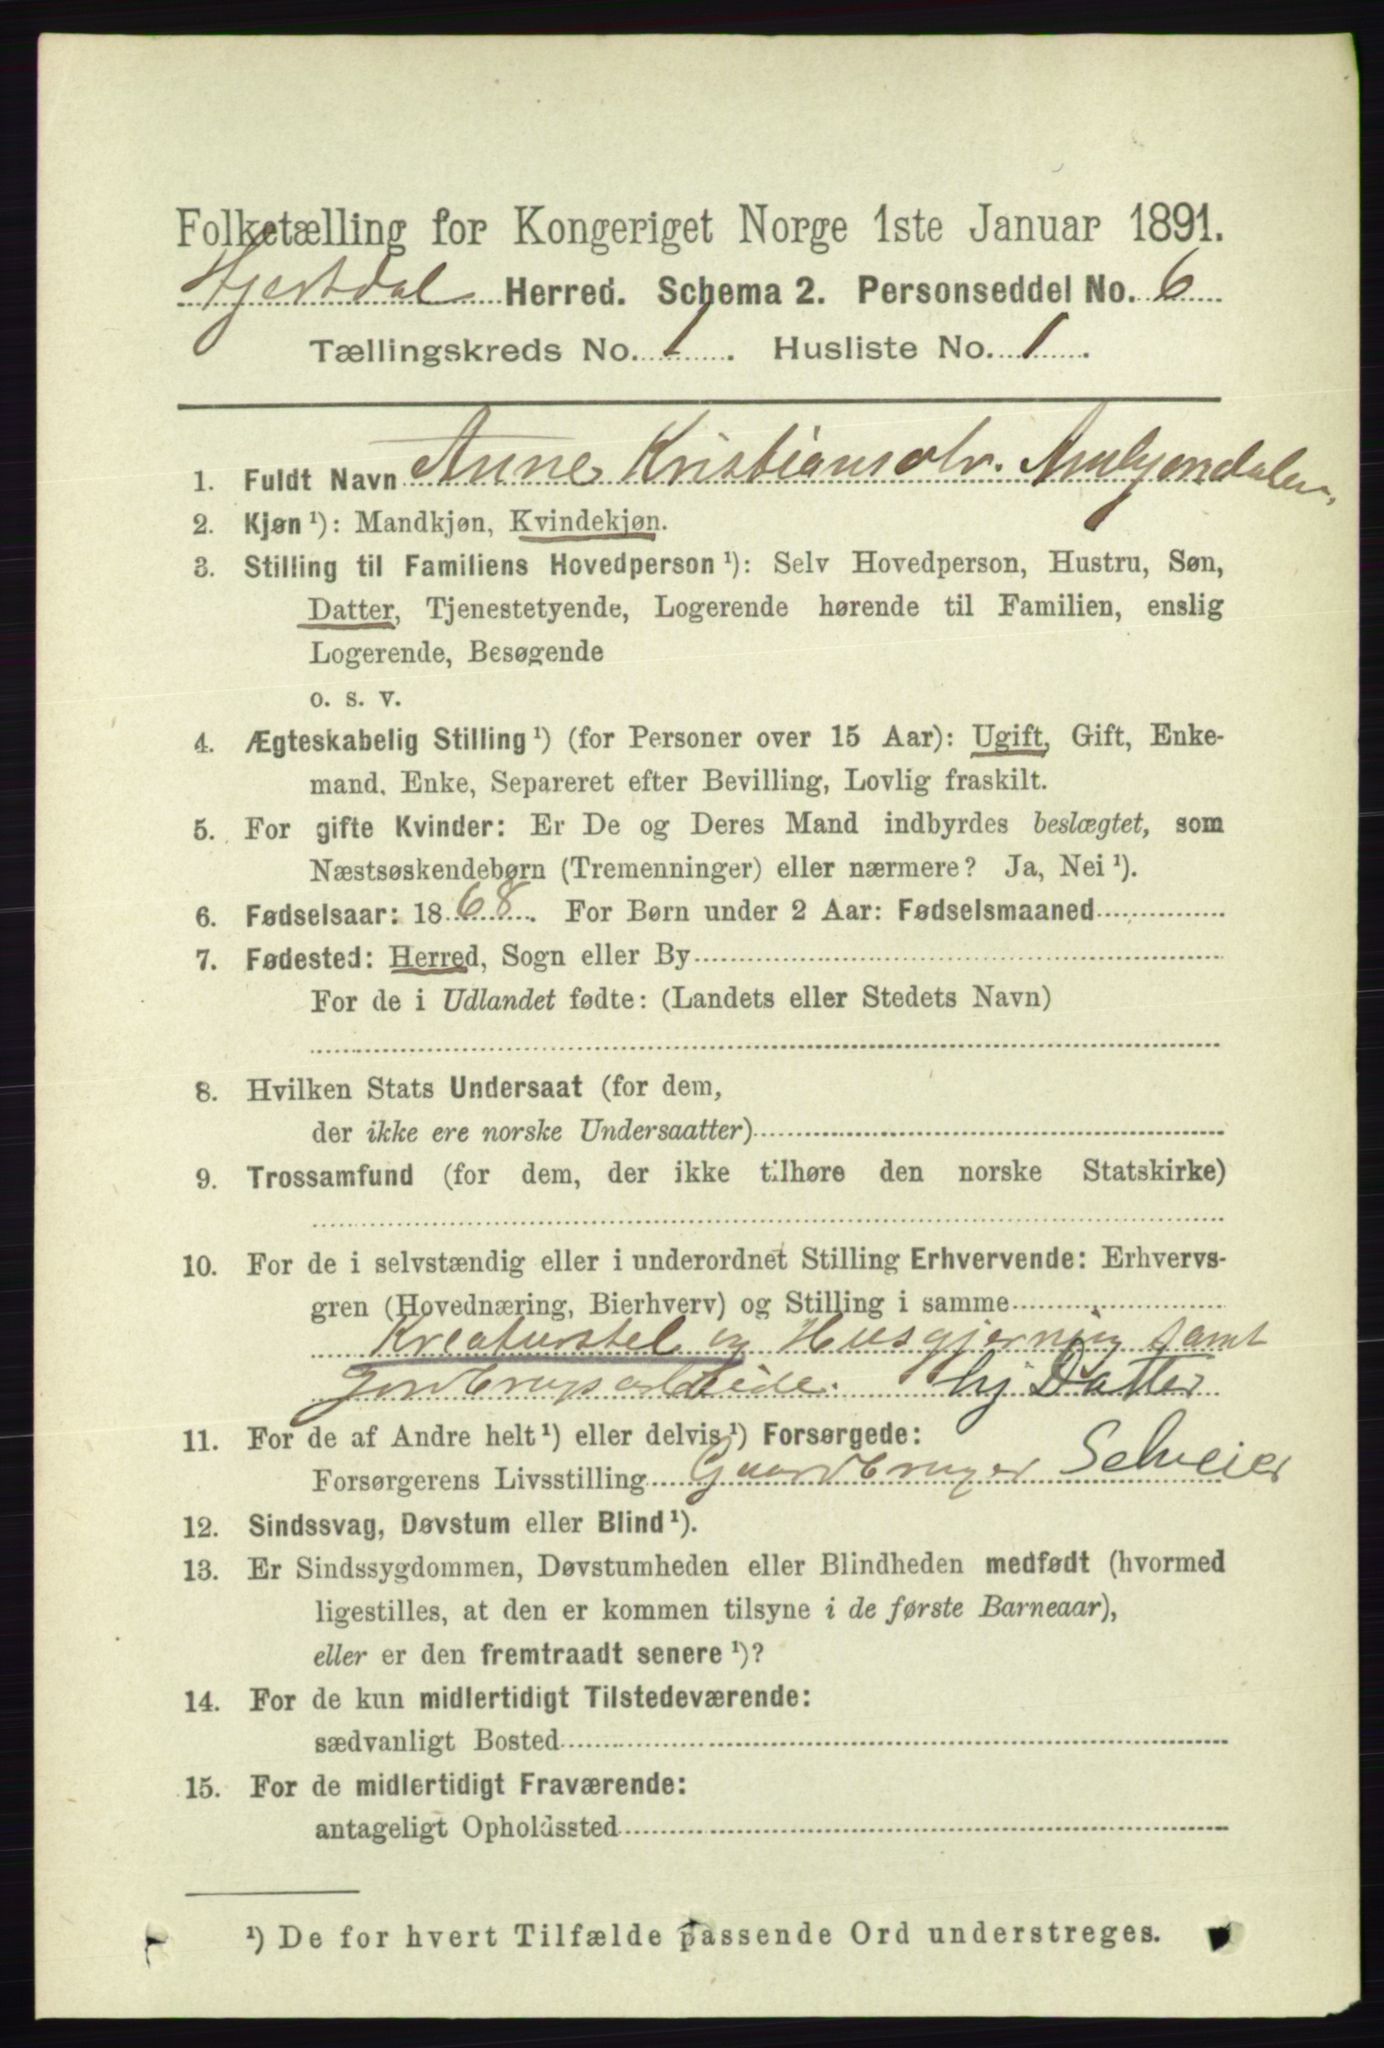 Folketælling for Kongeriget Norge 1ste Januar 1891.
Hjertdal Herred. Schema 2. Personseddel No. 6
Tællingskreds No. 1. Husliste No. 1.
1. Fuldt Navn Anne Kristiansdtr.
2. Kjøn ¹): Mandkjøn, Kvindekjøn.
3. Stilling til Familiens Hovedperson ¹): Selv Hovedperson, Hustru, Søn,
Datter, Tjenestetyende, Logerende hørende til Familien, enslig
Logerende, Besøgende
o. s. v.
4. Ægteskabelig Stilling ¹) (for Personer over 15 Aar): Ugift, Gift, Enke-
mand, Enke, Separeret efter Bevilling, Lovlig fraskilt.
5. For gifte Kvinder: Er De og Deres Mand indbyrdes beslægtet, som
Næstsøskendebørn (Tremenninger) eller nærmere? Ja, Nei ¹).
6. Fødselsaar: 1868. For Børn under 2 Aar: Fødselsmaaned
7. Fødested: Herred, Sogn eller By
For de i Udlandet fødte: (Landets eller Stedets Navn)
8. Hvilken Stats Undersaat (for dem,
der ikke ere norske Undersaatter)
9. Trossamfund (for dem, der ikke tilhøre den norske Statskirke)
10. For de i selvstændig eller i underordnet Stilling Erhvervende: Erhvervs-
gren (Hovednæring, Bierhverv) og Stilling i samme
Kreaturstel og Husgjerning samt
Jordbrugsarbeide. hj Datter
11. For de af Andre helt ¹) eller delvis ¹) Forsørgede:
Forsørgerens Livsstilling Gaardbruger Selveier
12. Sindssvag, Døvstum eller Blind ¹).
13. Er Sindssygdommen, Døvstumheden eller Blindheden medfødt (hvormed
ligestilles, at den er kommen tilsyne i de første Barneaar),
eller er den fremtraadt senere ¹)?
14. For de kun midlertidigt Tilstedeværende:
sædvanligt Bosted
15. For de midlertidigt Fraværende:
antageligt Opholdssted
¹) De for hvert Tilfælde passende Ord understreges.